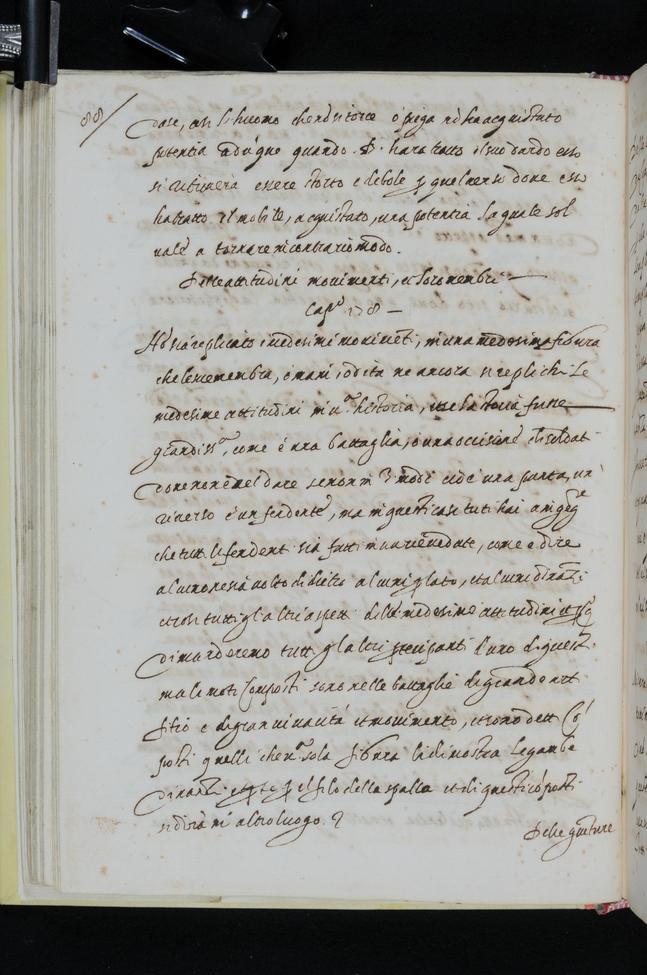 88
dose, così l'huomo che non si torce o piega non ha acquistato
potentia adunque quando B. hara tratto il suo dardo esso
si ritrovera essere storto e debole p quel verso dove esso
ha tratto il mobile, acquistato, una potentia la quale sol
vale a tornare in contrario modo.
Delle attitudini movimenti, et loro membri
Cap.º 178
Nō sia replicato i medesimi movimēti, in una medesima figura
che le sue membra, o mani, o dita ne ancora si replichi le
medesime attitudini in una historia, et se la storia fusse
grandiss.ª come è una battaglia, o una occisione di soldati
dove non è nel dare se non in 3 modi cioè una punta, un
riverso e un fendente, ma in questi casi tu ti hai a ingeg.e
che tutti li fendenti siā fatti in varie vedute, come è dire
alcuno sia volto di dietro alcuni p lato, et alcuni dināzi
et così tutti gl'altri aspetti delle medesime attitudini
dimanderemo tutti gl'altri participanti l'uno di questi
ma li moti Composti sono nelle battaglie di grande arti
fitio e di gran vivacità et movimento, et sono detti Cō
posti quelli che una sola figura ti dimostra le gambe
dinanzi et parte p el filo della spalla et di questi cōposti
si dirà in altro luogo.
Delle gunture